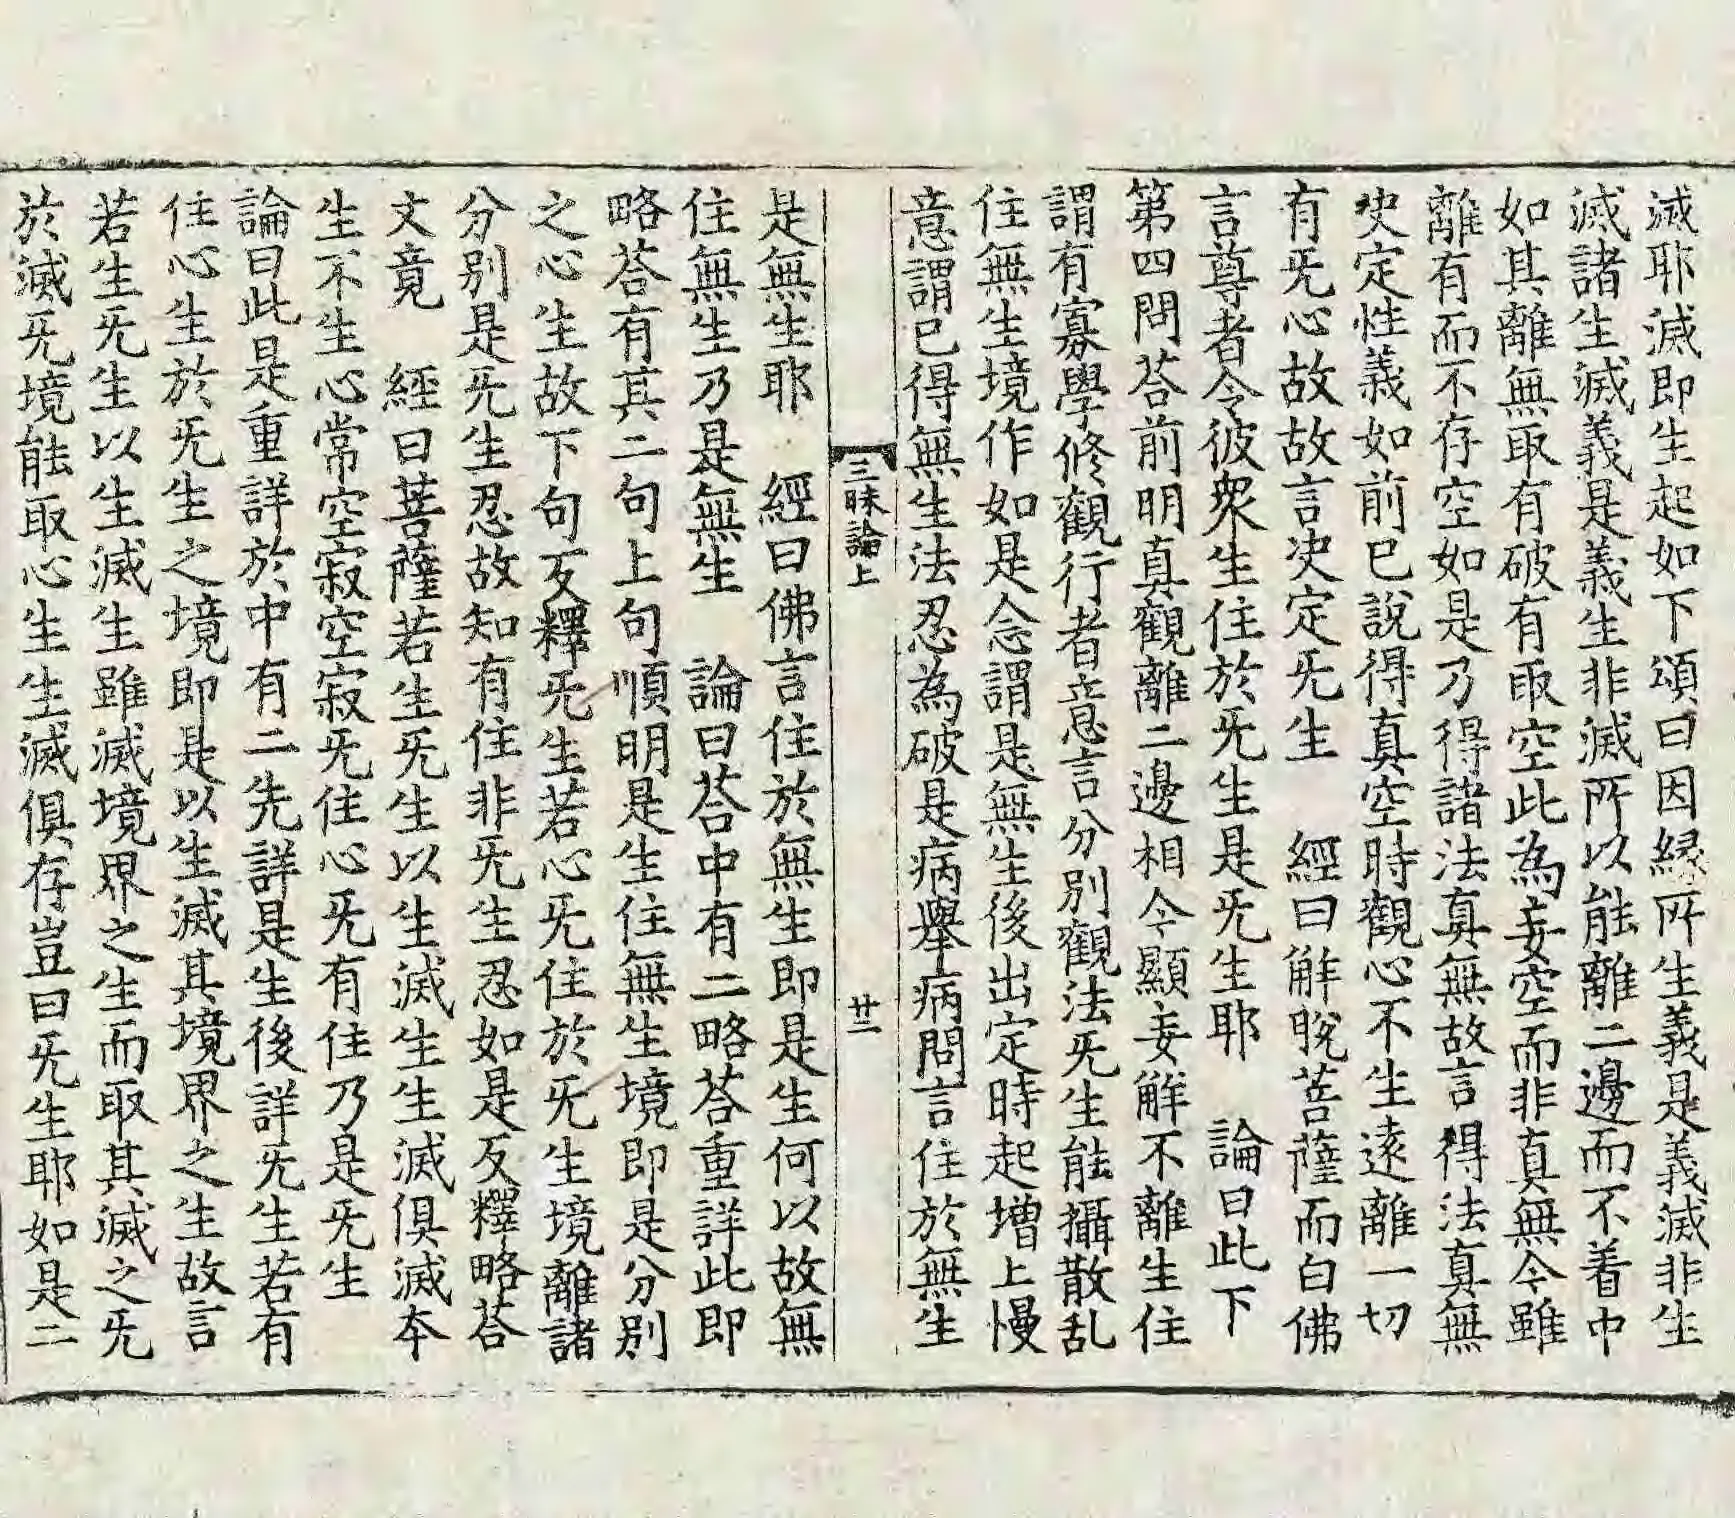 滅耶滅即生起如下頌曰因縁所生義是義滅非生
滅諸生滅義是義生非滅所以能離二邊而不着中
如其離無取有破有取空此為妄空而非真無今雖
離有而不存空如是乃得諸法真無故言得法真無
决定性義如前已說得真空時觀心不生遠離一切
有旡心故故言决定旡生　經曰解脫菩薩而白佛
言尊者令彼衆生住於旡生是旡生耶　論曰此下
第四問荅前明真觀離二邊相今顯妄解不離生住
謂有寡學修觀行者意言分別觀法旡生能攝散乱
住無生境作如是念謂是無生後出定時起增上慢
意謂已得無生法忍為破是病舉病問言住於無生
三昧論上　廿二
是無生耶　經曰佛言住於無生即是生何以故無
住無生乃是無生　論曰荅中有二略荅重詳此即
略荅有其二句上句順明是生住無生境即是分別
之心生故下句反釋旡生若心旡住於旡生境離諸
分別是旡生忍故知有住非旡生忍如是反釋略荅
文竟　經曰菩薩若生旡生以生滅生生滅俱滅夲
生不生心常空寂空寂旡住心旡有住乃是旡生
論曰此是重詳於中有二先詳是生後詳旡生若有
住心生於旡生之境即是以生滅其境界之生故言
若生旡生以生滅生雖滅境界之生而取其滅之旡
於滅旡境能取心生生滅俱存豈曰旡生耶如是二